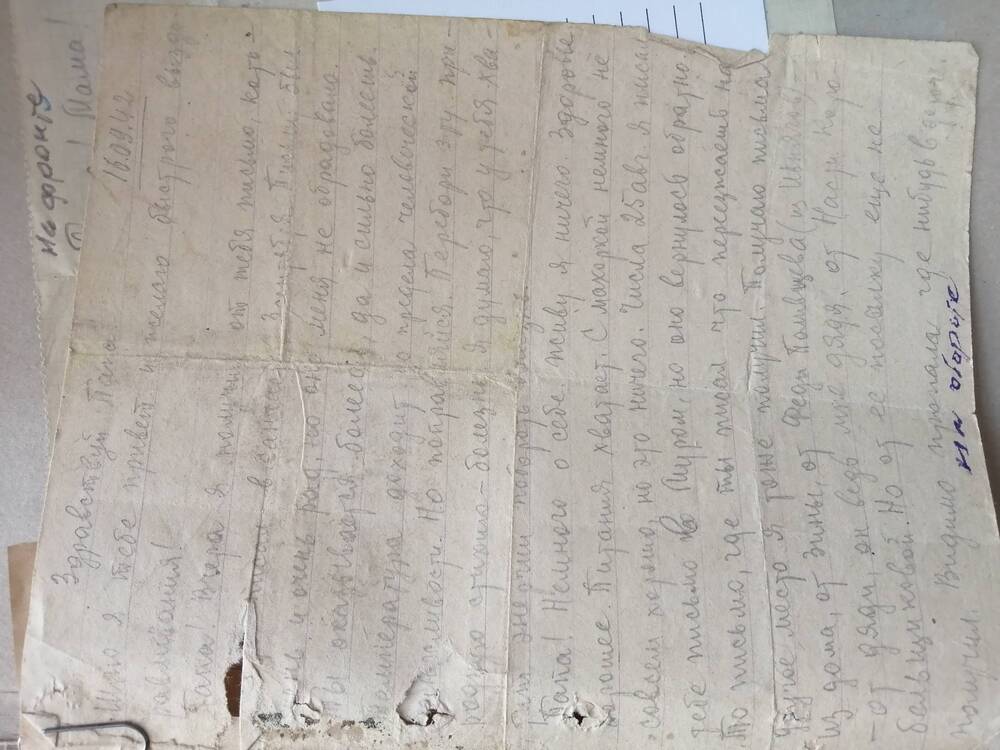 на фронте
Мама!
16.09.42
Здравствуй Папа!
Шлю я тебе привет и желаю быстрого выздо-
равливания!
Папка! Вчера я получил от тебя письмо, ко
за что я
и очень рад, но оно меня не обрадовало
Ты оказывается болеешь, да и сильно болеешь.
температура доходит до предела человеческой
Но поправляйся. Перебори эту
болезнь. Я думаю, что у тебя хва-
тит энергии побороть болезнь.
Папа! Немного о себе. Живу я ничего. Здоровье
хорошее. Питания хватает. С махоркой немного не
совсем хорошо, но это ничего. Числа 25 авг. я писал
тебе письмо в Муром, но оно вернулось обратно.
То письмо, где ты писал что переезжаешь на
другое место я тоже получил. Получаю письма
из дома, от Зины, от Феди
- от дяди, он ведь мне дядя, от Насти
Но от ее посылку еще не
получил. Видимо пропала где нибудь
на обороте